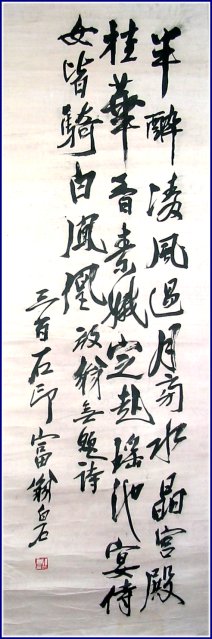 半醉凌風過月旁水晶宮殿
桂華香素娥定赴瑤池宴侍
女皆騎白鳳凰 放翁無題詩
三百石印富翁白石